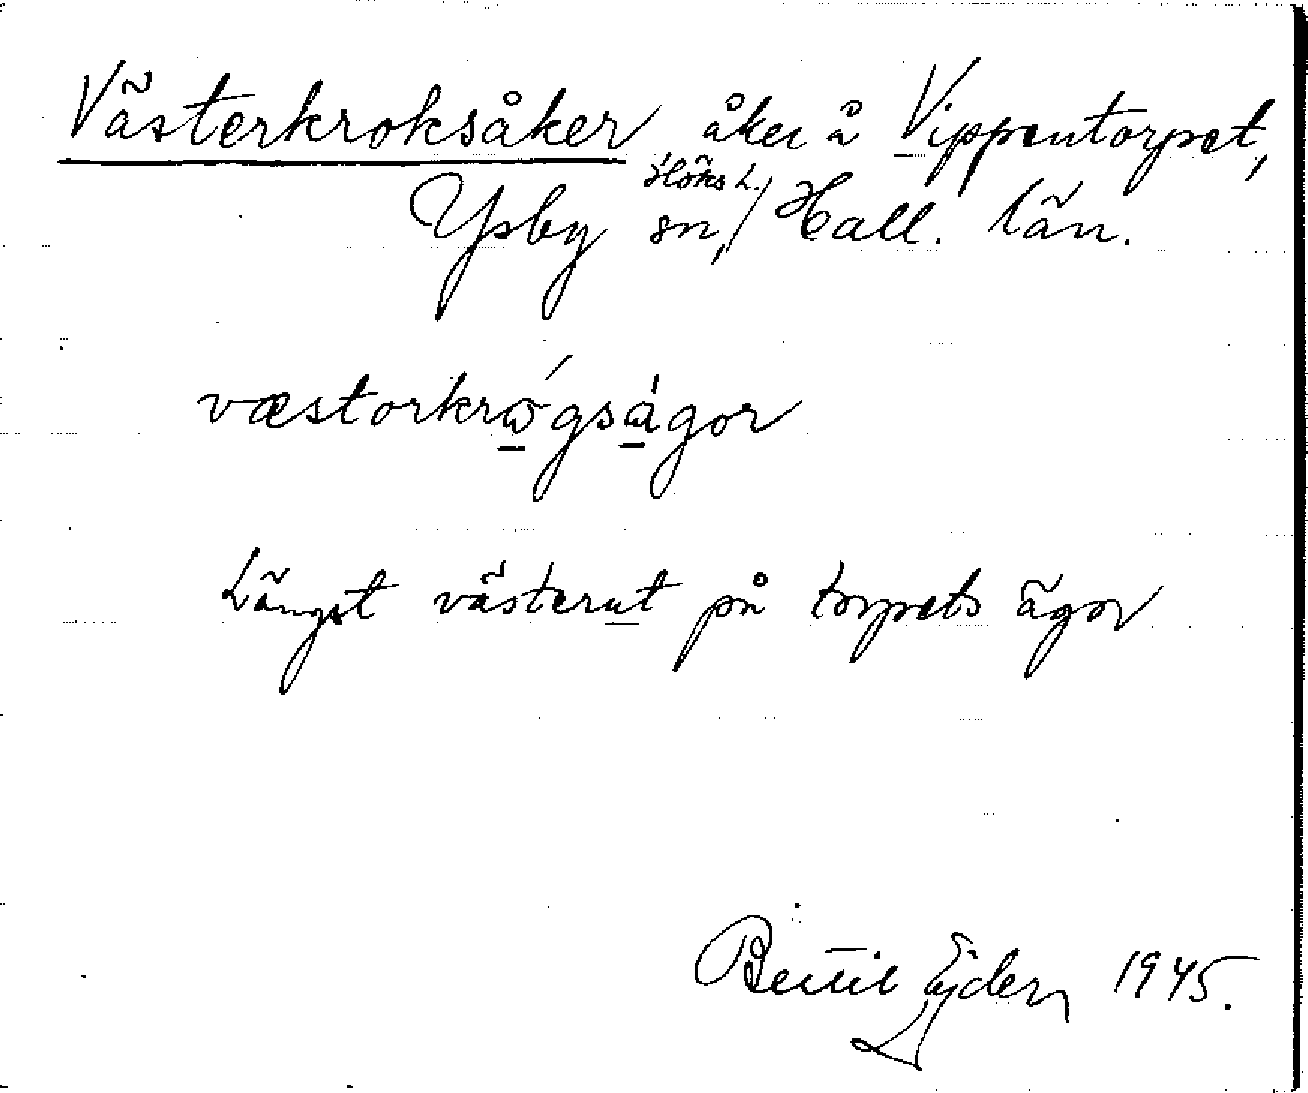 Västerkroksåker åker å Vippentorpet,
Ysby sn, Höks h. Hall. län.
væstorkrω̄́gságor
Längst västerut på torpets ägor
Bertil Ejder 1945.